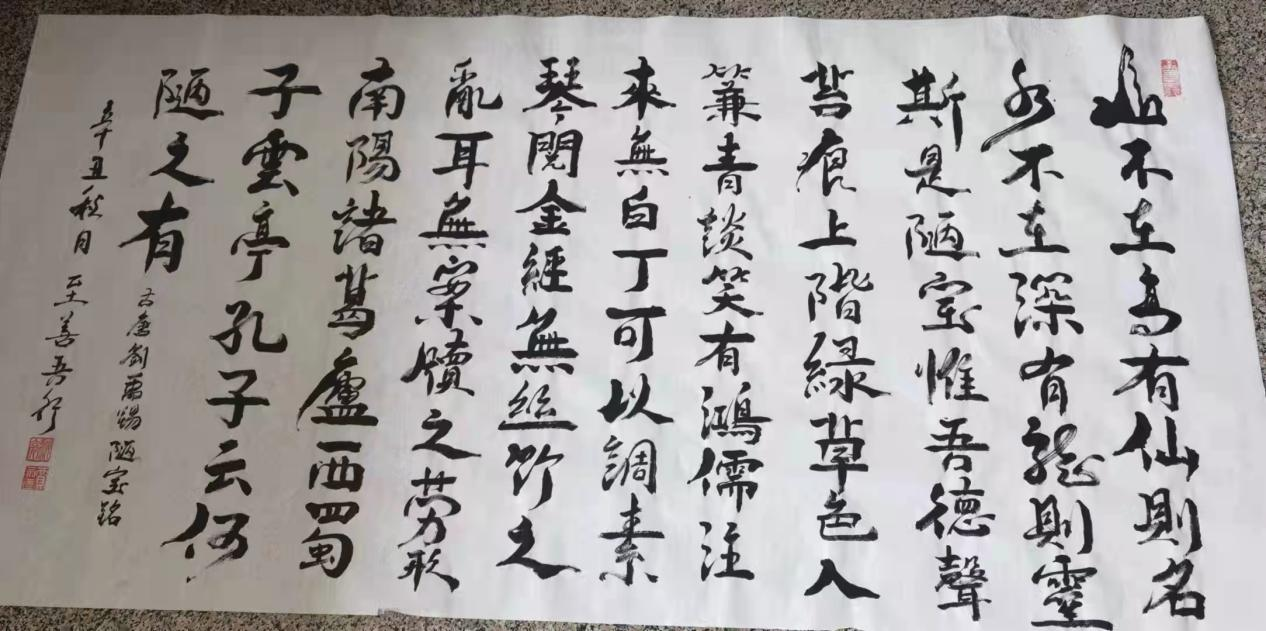 山不在高有仙則名
水不在深有龍則靈
斯是陋室惟吾德聲
苔痕上階緑草色入
簾青談笑有鴻儒往
來無白丁可以調素
琴閱金經無絲竹之
亂耳無案牘之勞形
南陽諸葛廬西蜀
子雲亭孔子云何
陋之有
右唐劉禹錫陋室銘
辛丑秋月至善吾行